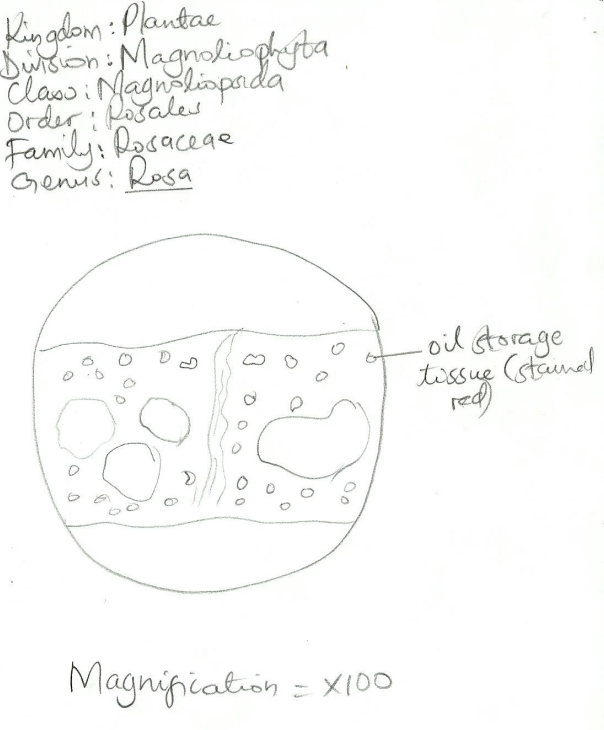 Kingdom: Plantae
Division: Magnoliophyta
Class: Magnoliopsida
Order: Rosales
Family: Rosaceae
Genus: Rosa
oil storage
tissue (stained
red)
Magnification = x100